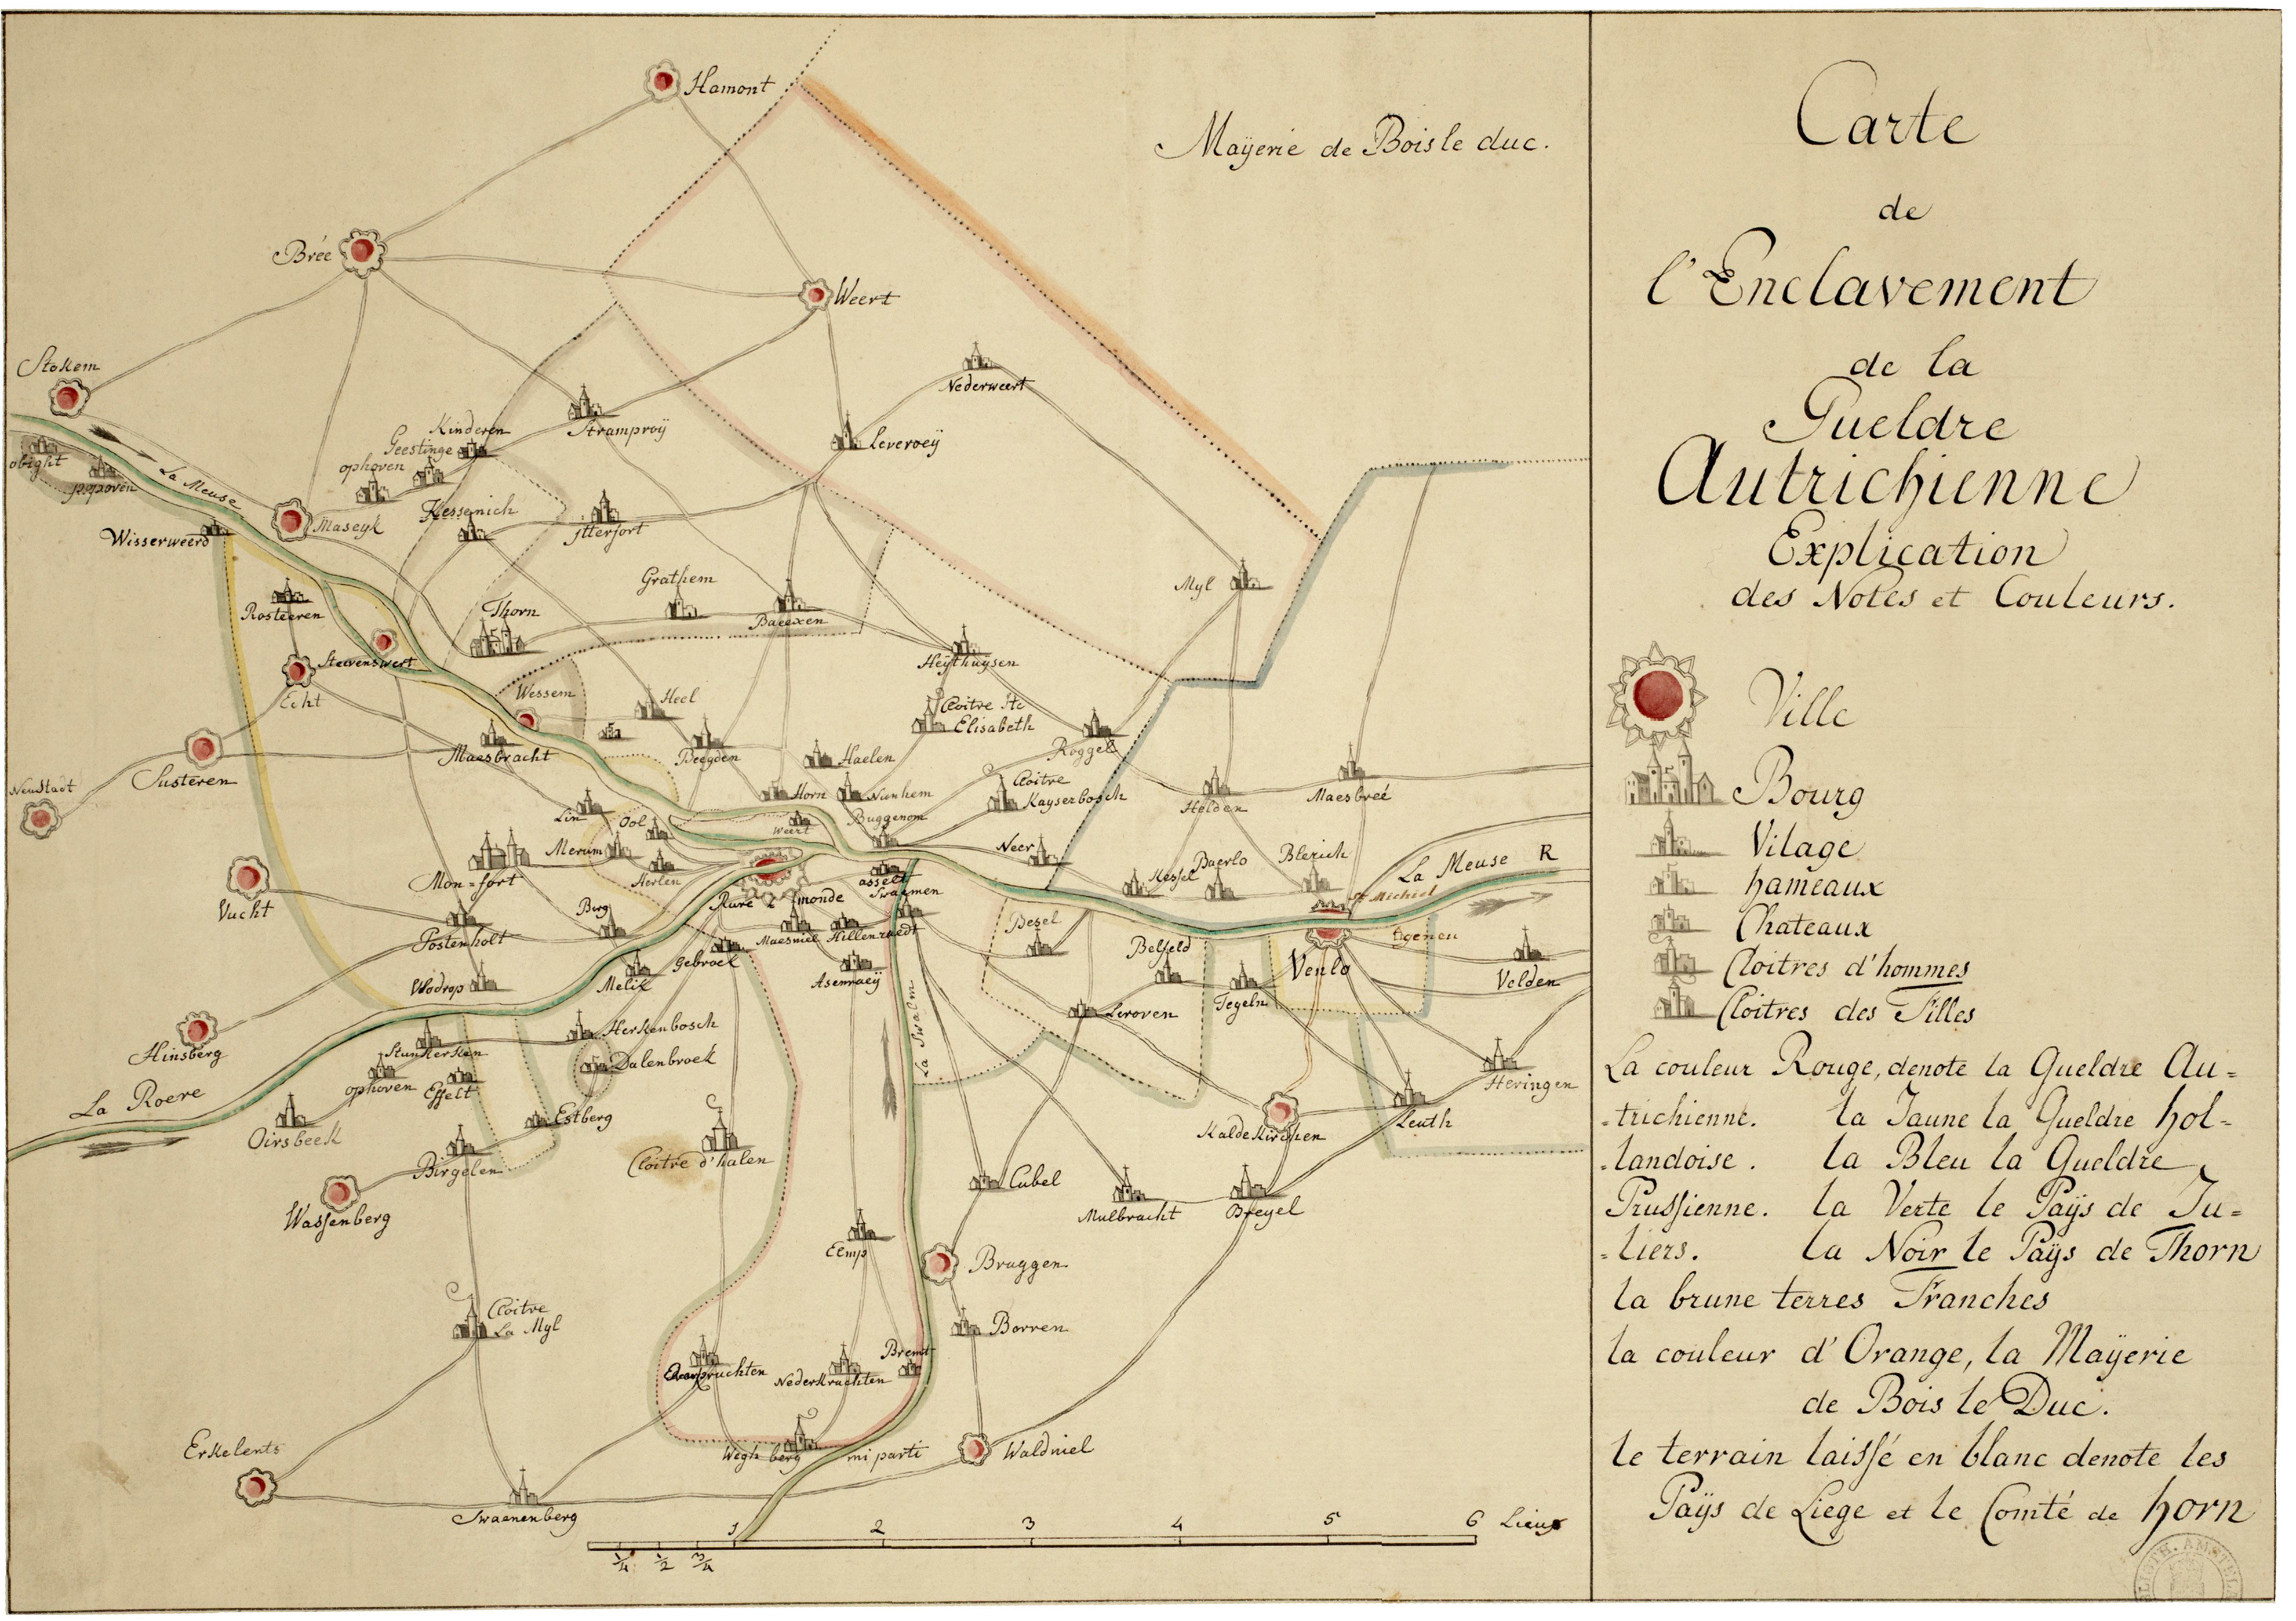 Hamont
Maÿerie de Bois le duc.
Brée
Weert
Stokem
Nederweert
Kinderen
Stramproÿ
Geestinge
Leveroeÿ
ophoven
obight
papoven
La Meuse
Maseyk
Kessenich
Jtterfort
Wisserweerd
Grathem
Myl
Rosteeren
Thorn
Baexen
Stevenswert
Heÿthuÿsen
Echt
Wessem
Heel
Cloitre Ste
Elisabeth
Maesbracht
Beegden
Haelen
Roggel
Susteren
Neustadt
Horn
Nunhem
Cloitre
Kayserbosch
Holden
Maesbreé
Lin
Ool
Weert
Buggenom
Merum
Neer
Baerlo
Blerich
La Meuse R
Mon=fort
Herten
asselt
Kessel
St Michiel
Vucht
Rure
monde
Swalmen
Postenholt
Birg
Maesniel
Hillenraedt
Besel
Belfeld
Venlo
Gebroek
Wodrop
Melik
Asenraeÿ
Tegeln
Velden
La Swalm
Leroven
Hinsberg
Stunkerken
Herkenbosch
Dalenbroek
ophoven
Effelt
Heringen
La Roere
Oirsbeek
Estberg
Kaldekirchen
Leuth
Birgelen
Cloitre d'halen
Wassenberg
Cubel
Mulbracht
Breyel
Elmp
Bruggen
Cloitre
La Myl
Borren
Bremt
Nederkruchten
Erkelents
Weghberg
mi parti
Waldniel
Swaenenberg
1 2 3 4 5 6 Lieux
1/4 1/2 3/4
Carte
de
l'Enclavement
de la
Gueldre
Autrichienne
Explication
des Notes et Couleurs.
Ville
Bourg
Vilage
hameaux
Chateaux
Cloitres d'hommes
Cloitres des Filles
La couleur Rouge, denote la Gueldre Au=
=trichienne. la Jaune la Gueldre hol=
=landoise. la Bleu la Gueldre
Prussienne. la Verte le Paÿs de Ju=
=liers. la Noir le Paÿs de Thorn
la brune terres Franches
la couleur d'Orange, la Maÿerie
de Bois le Duc.
le terrain laissé en blanc denote les
Paÿs de Liege et le Comté de horn